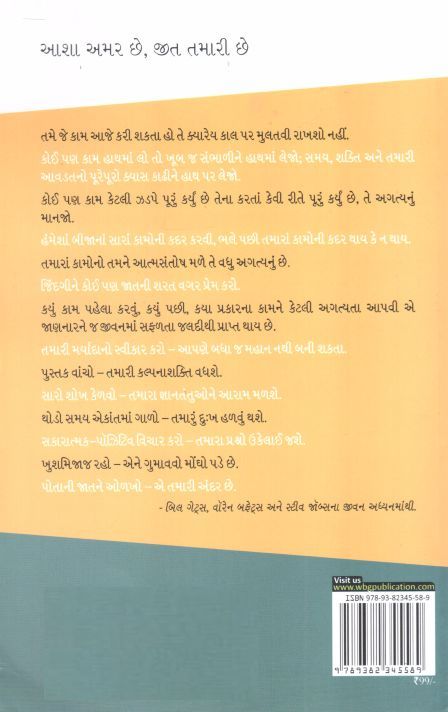 આશા અમર છે, જીત તમારી છે
તમે જે કામ આજે કરી શકતા હો તે ક્યારેય કાલ પર મુલતવી રાખશો નહીં.
કોઈ પણ કામ હાથમાં લો તો ખૂબ જ સંભાળીને હાથમાં લેજો; સમય, શક્તિ અને તમારી
આવડતનો પૂરેપૂરો ક્યાસ કાઢીને હાથ પર લેજો.
કોઈ પણ કામ કેટલી ઝડપે પૂરું કર્યું છે તેના કરતાં કેવી રીતે પૂરું કર્યું છે, તે અગત્યનું
માનજો.
હંમેશાં બીજાનાં સારાં કામોની કદર કરવી, ભલે પછી તમારાં કામોની કદર થાય કે ન થાય.
તમારાં કામોનો તમને આત્મસંતોષ મળે તે વધુ અગત્યનું છે.
જિંદગીને કોઈ પણ જાતની શરત વગર પ્રેમ કરો.
કયું કામ પહેલા કરવું, કયું પછી, કયા પ્રકારના કામને કેટલી અગત્યતા આપવી એ
જાણનારને જ જીવનમાં સફળતા જલદીથી પ્રાપ્ત થાય છે.
તમારી મર્યાદાનો સ્વીકાર કરો – આપણે બધા જ મહાન નથી બની શકતા.
પુસ્તક વાંચો – તમારી કલ્પનાશક્તિ વધશે.
સારો શોખ કેળવો – તમારા જ્ઞાનતંતુઓને આરામ મળશે.
થોડો સમય એકાંતમાં ગાળો – તમારું દુઃખ હળવું થશે.
સકારાત્મક–પૉઝિટિવ વિચાર કરો – તમારા પ્રશ્નો ઉકેલાઈ જશે.
ખુશમિજાજ રહો – એને ગુમાવવો મોંઘો પડે છે.
પોતાની જાતને ઓળખો – એ તમારી અંદર છે.
- બિલ ગેટ્સ, વૉરેન બફેટ્સ અને સ્ટીવ જૉબ્સના જીવન અધ્યનમાંથી.
Visit us
www.wbgpublication.com
ISBN 978-93-82345-58-9
9 789382 345589
₹99/-